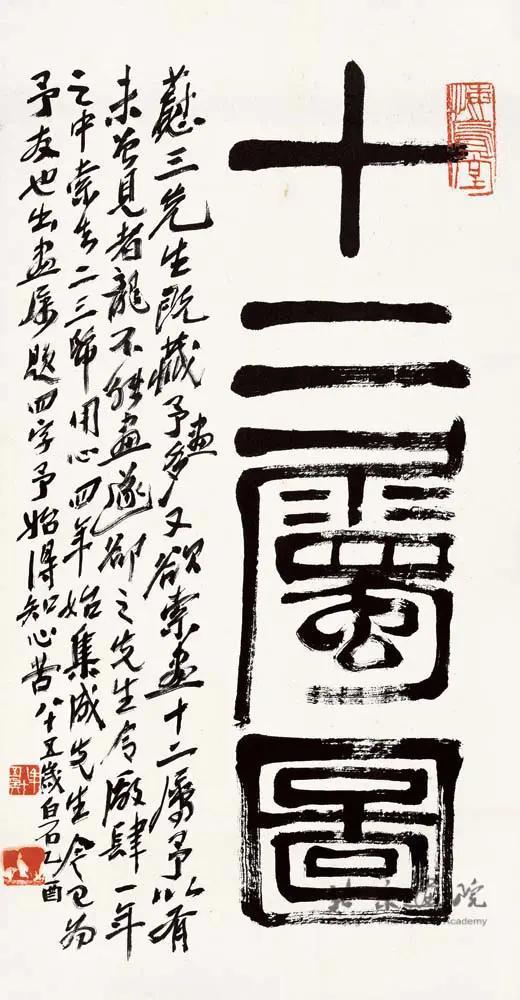 十二屬圖
悔烏堂
三先生既藏予畫多又欲索畫十二屬予以有
未曾見者龍不能畫遂卻之先生令廠肆一年
之中索去二三幅用心四年始集成先生今已為
予友也出畫屬題四字予始得知心苦八十五歲白石乙酉
北京画院
Academy